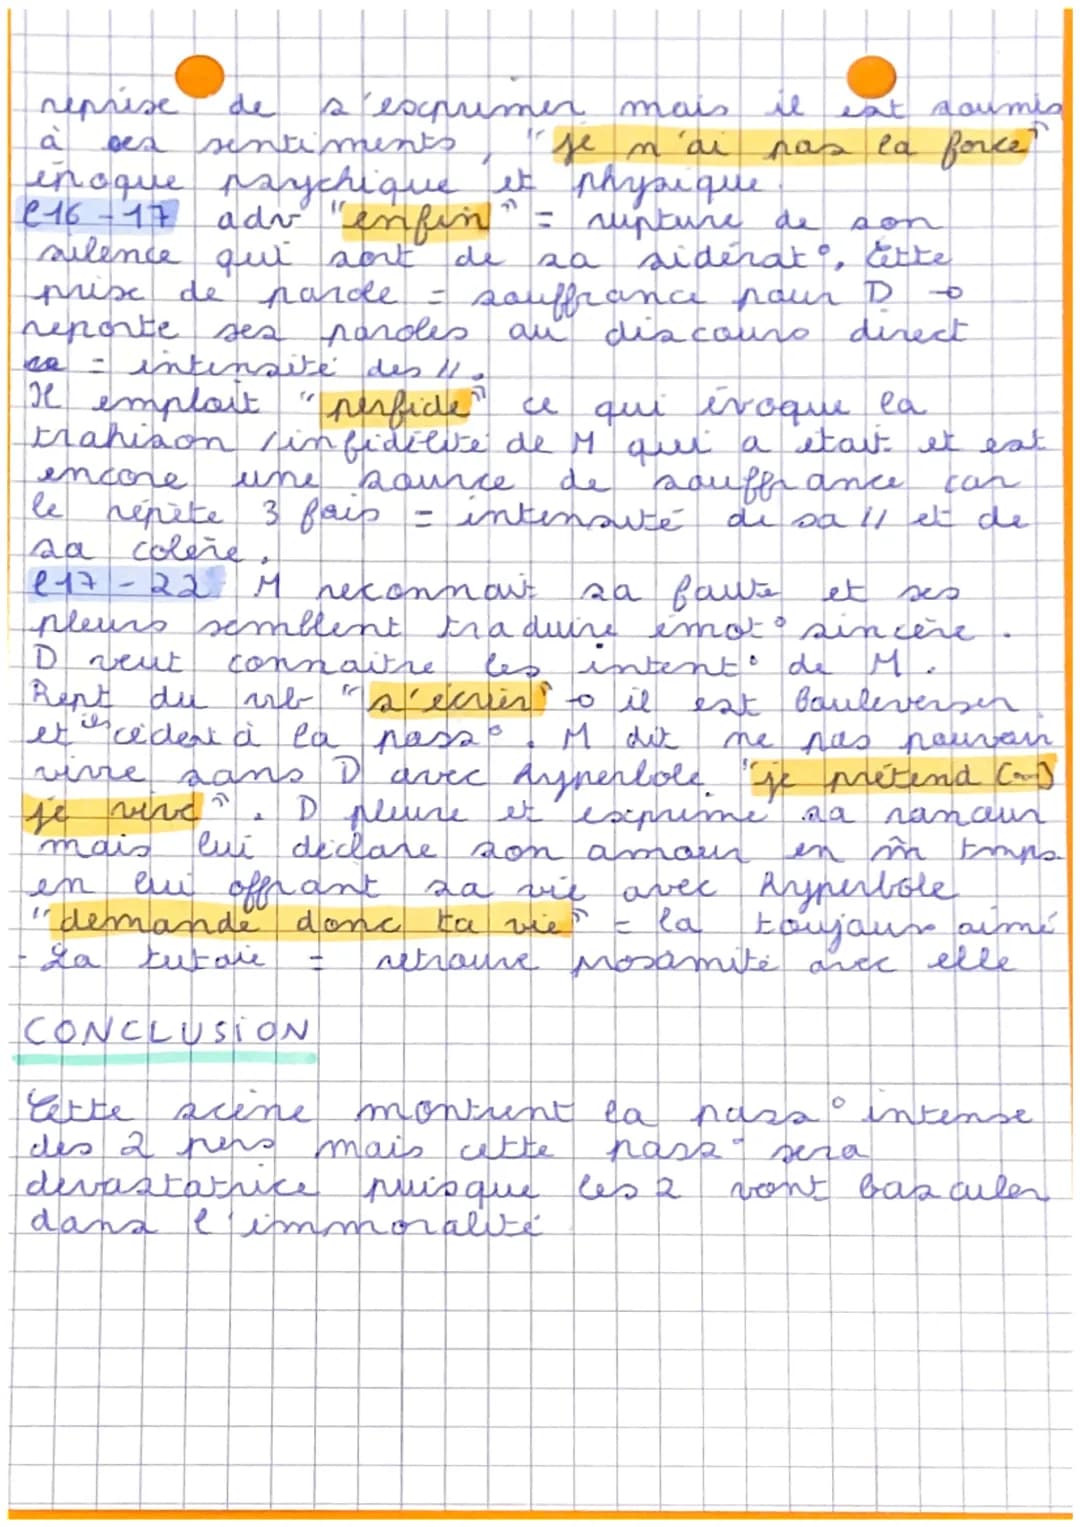 reprise de s'exprimer mais il est soumis
à ses sentiments, "je n'ai pas la force"
évoque psychique et physique.
l16-17 adv "enfin" = rupture de son
silence qui sort de sa sidérat°, Cette
prise de parole = souffrance pour D →
reporte ses paroles au discours direct
ce = intensité des //.
Il emploit "perfide" ce qui évoque la
trahison /infidélité de M qui a était et est
encore une source de souffrance car
le répète 3 fois = intensité de sa // et de
sa colère.
l17-22 M reconnait sa faute et ses
pleurs semblent traduire émot° sincère.
D veut connaitre les intent° de M.
Rept du vrb "s'écrier" → il est bouleverser
et ils cèdent à la pass°. M dit ne pas pouvoir
vivre sans D avec hyperbole "je prétend (...)
je vive". D pleure et exprime sa rancœur
mais lui déclare son amour en m̂ tmps
en lui offrant sa vie avec hyperbole
"demande donc ta vie" = la toujours aimé
- La tutoie = retrouve proxamité avec elle
CONCLUSION
Cette scène montrent la pass° intense
des 2 pers mais cette pass° sera
dévastatrice puisque les 2 vont basculer
dans l'immoralité